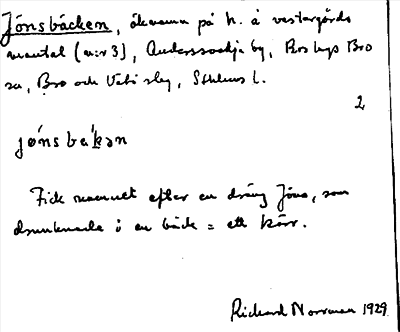 Jönsbäcken, åkernamn på h. å västergårds
mantal (nr 3), by, Roslags Bro
sn, Bro och Vätö slg, Sthlms l.
2
jø´ns bɛ`kən
Fick namnet efter en dräng Jöns, som
drunknade i en bäck = ett kärr.
Richard Norrman 1929